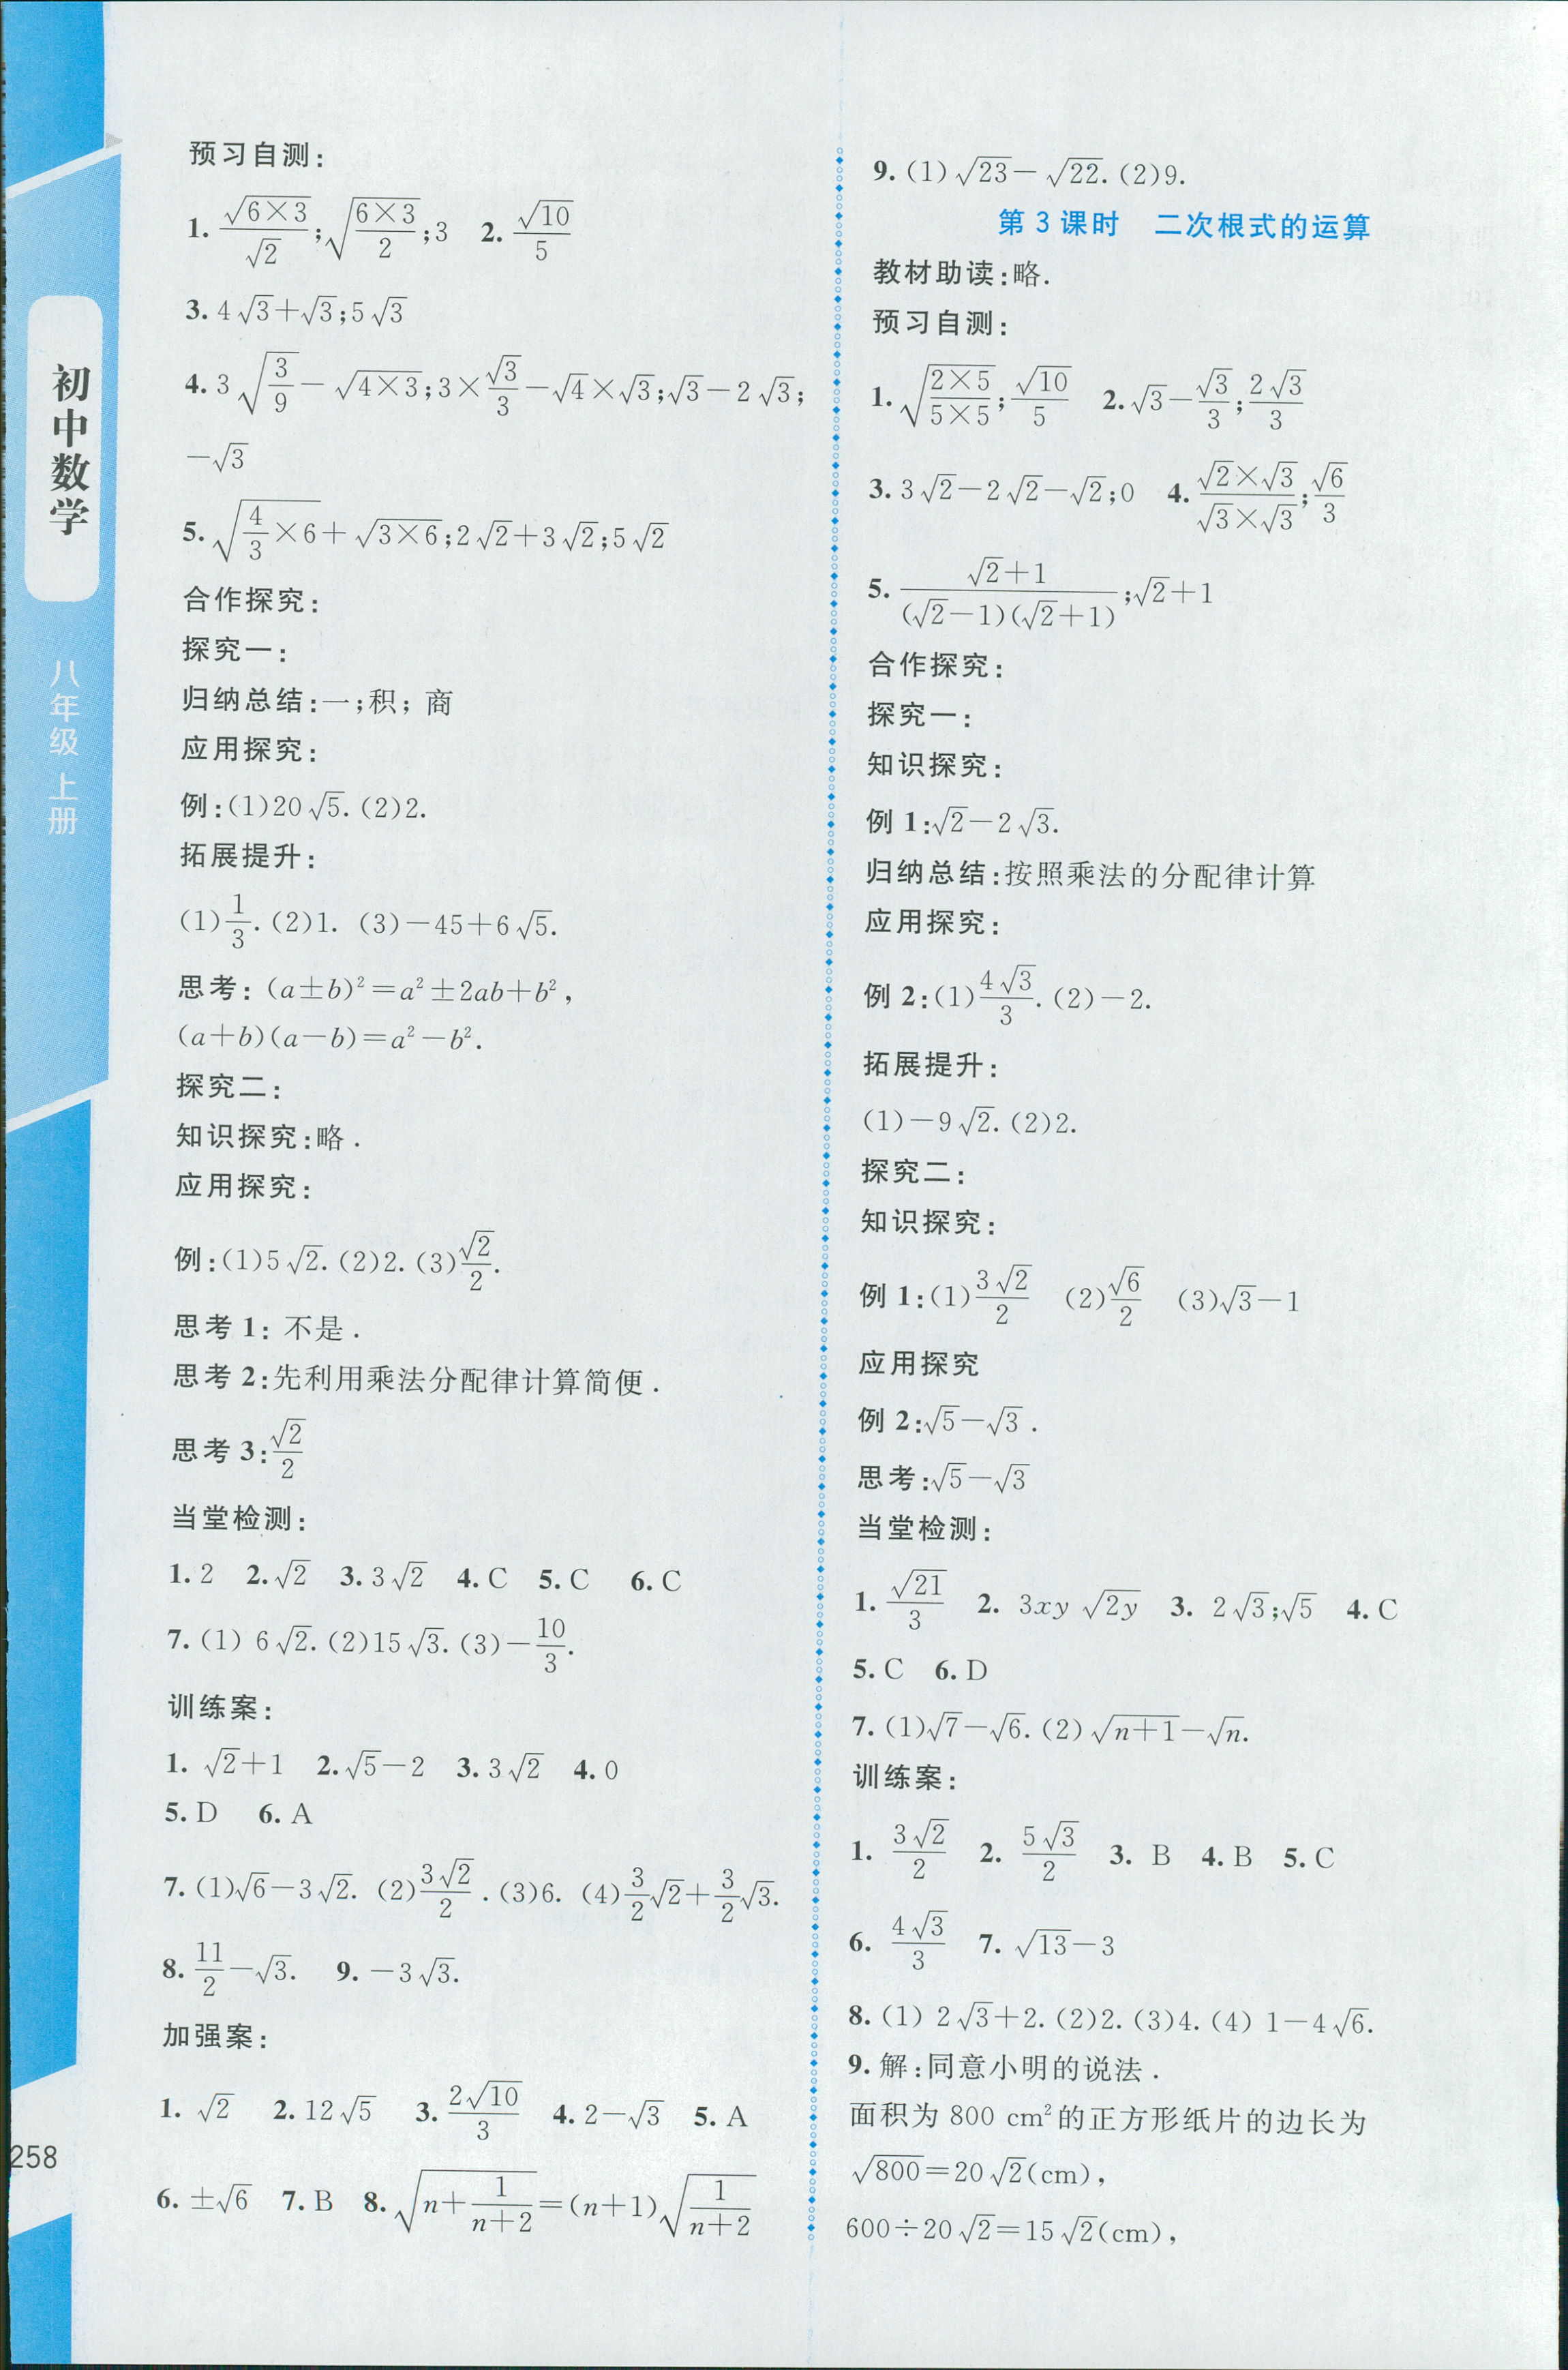 初中数学
八年级 上册
258
预习自测:
1. √(6×3)/√2;√(6×3/2);3 2. √10/5
3. 4√3+√3;5√3
4. 3√(3/9)-√(4×3);3×√3/3-√4×√3;√3-2√3;
-√3
5. √(4/3×6)+√(3×6);2√2+3√2;5√2
合作探究:
探究一:
归纳总结:一;积; 商
应用探究:
例:(1)20√5. (2)2.
拓展提升:
(1)1/3. (2)1. (3)-45+6√5.
思考: (a±b)²=a²±2ab+b²,
(a+b)(a-b)=a²-b².
探究二:
知识探究:略.
应用探究:
例:(1)5√2. (2)2. (3)√2/2.
思考 1: 不是.
思考 2:先利用乘法分配律计算简便.
思考 3:√2/2
当堂检测:
1. 2 2. √2 3. 3√2 4. C 5. C 6. C
7. (1) 6√2. (2)15√3. (3)-10/3.
训练案:
1. √2+1 2. √5-2 3. 3√2 4. 0
5. D 6. A
7. (1)√6-3√2. (2)3√2/2. (3)6. (4)3/2√2+3/2√3.
8. 11/2-√3. 9. -3√3.
加强案:
1. √2 2. 12√5 3. 2√10/3 4. 2-√3 5. A
6. ±√6 7. B 8. √(n+1/(n+2))=(n+1)√(1/(n+2))
9. (1)√23-√22. (2)9.
第 3 课时 二次根式的运算
教材助读:略.
预习自测:
1. √((2×5)/(5×5));√10/5 2. √3-√3/3;2√3/3
3. 3√2-2√2-√2;0 4. (√2×√3)/(√3×√3);√6/3
5. (√2+1)/((√2-1)(√2+1));√2+1
合作探究:
探究一:
知识探究:
例 1:√2-2√3.
归纳总结:按照乘法的分配律计算
应用探究:
例 2:(1)4√3/3. (2)-2.
拓展提升:
(1)-9√2. (2)2.
探究二:
知识探究:
例 1:(1)3√2/2 (2)√6/2 (3)√3-1
应用探究
例 2:√5-√3.
思考:√5-√3
当堂检测:
1. √21/3 2. 3xy√(2y) 3. 2√3;√5 4. C
5. C 6. D
7. (1)√7-√6. (2)√(n+1)-√n.
训练案:
1. 3√2/2 2. 5√3/2 3. B 4. B 5. C
6. 4√3/3 7. √13-3
8. (1) 2√3+2. (2)2. (3)4. (4) 1-4√6.
9. 解:同意小明的说法.
面积为 800 cm²的正方形纸片的边长为
√800=20√2(cm),
600÷20√2=15√2(cm),